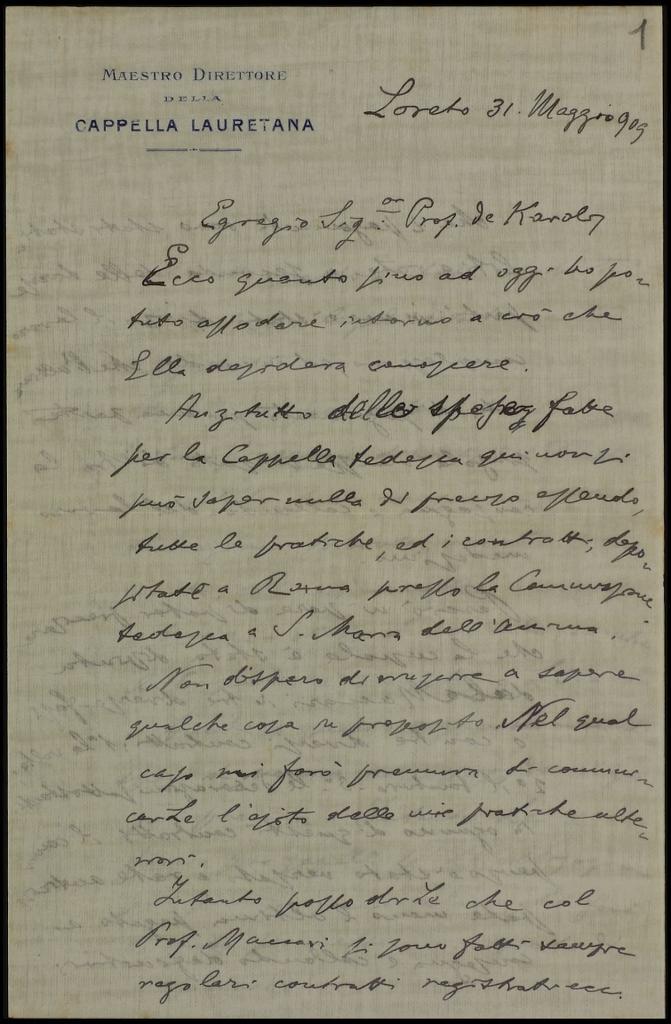 1
MAESTRO DIRETTORE
DELLA
CAPPELLA LAURETANA
Loreto 31. Maggio 909
Egregio Sig.or Prof. de Karoly
Ecco quanto sino ad oggi ho po-
tuto assodare intorno a ciò che
Ella desidera conoscere.
Anzitutto delle spese fatte
per la Cappella tedesca qui non si
può saper nulla di preciso essendo,
tutte le pratiche, ed i contratti, depo-
sitati a Roma presso la Commissione
tedesca a S. Maria dell'anima.
Non dispero di riuscire a sapere
qualche cosa in proposito. Nel qual
caso mi farò premura di comuni-
carLe l'esito delle mie pratiche ulte-
riori.
Intanto posso dirLe che col
Prof. Maccari si sono fatti sempre
regolari contratti registrati ecc.